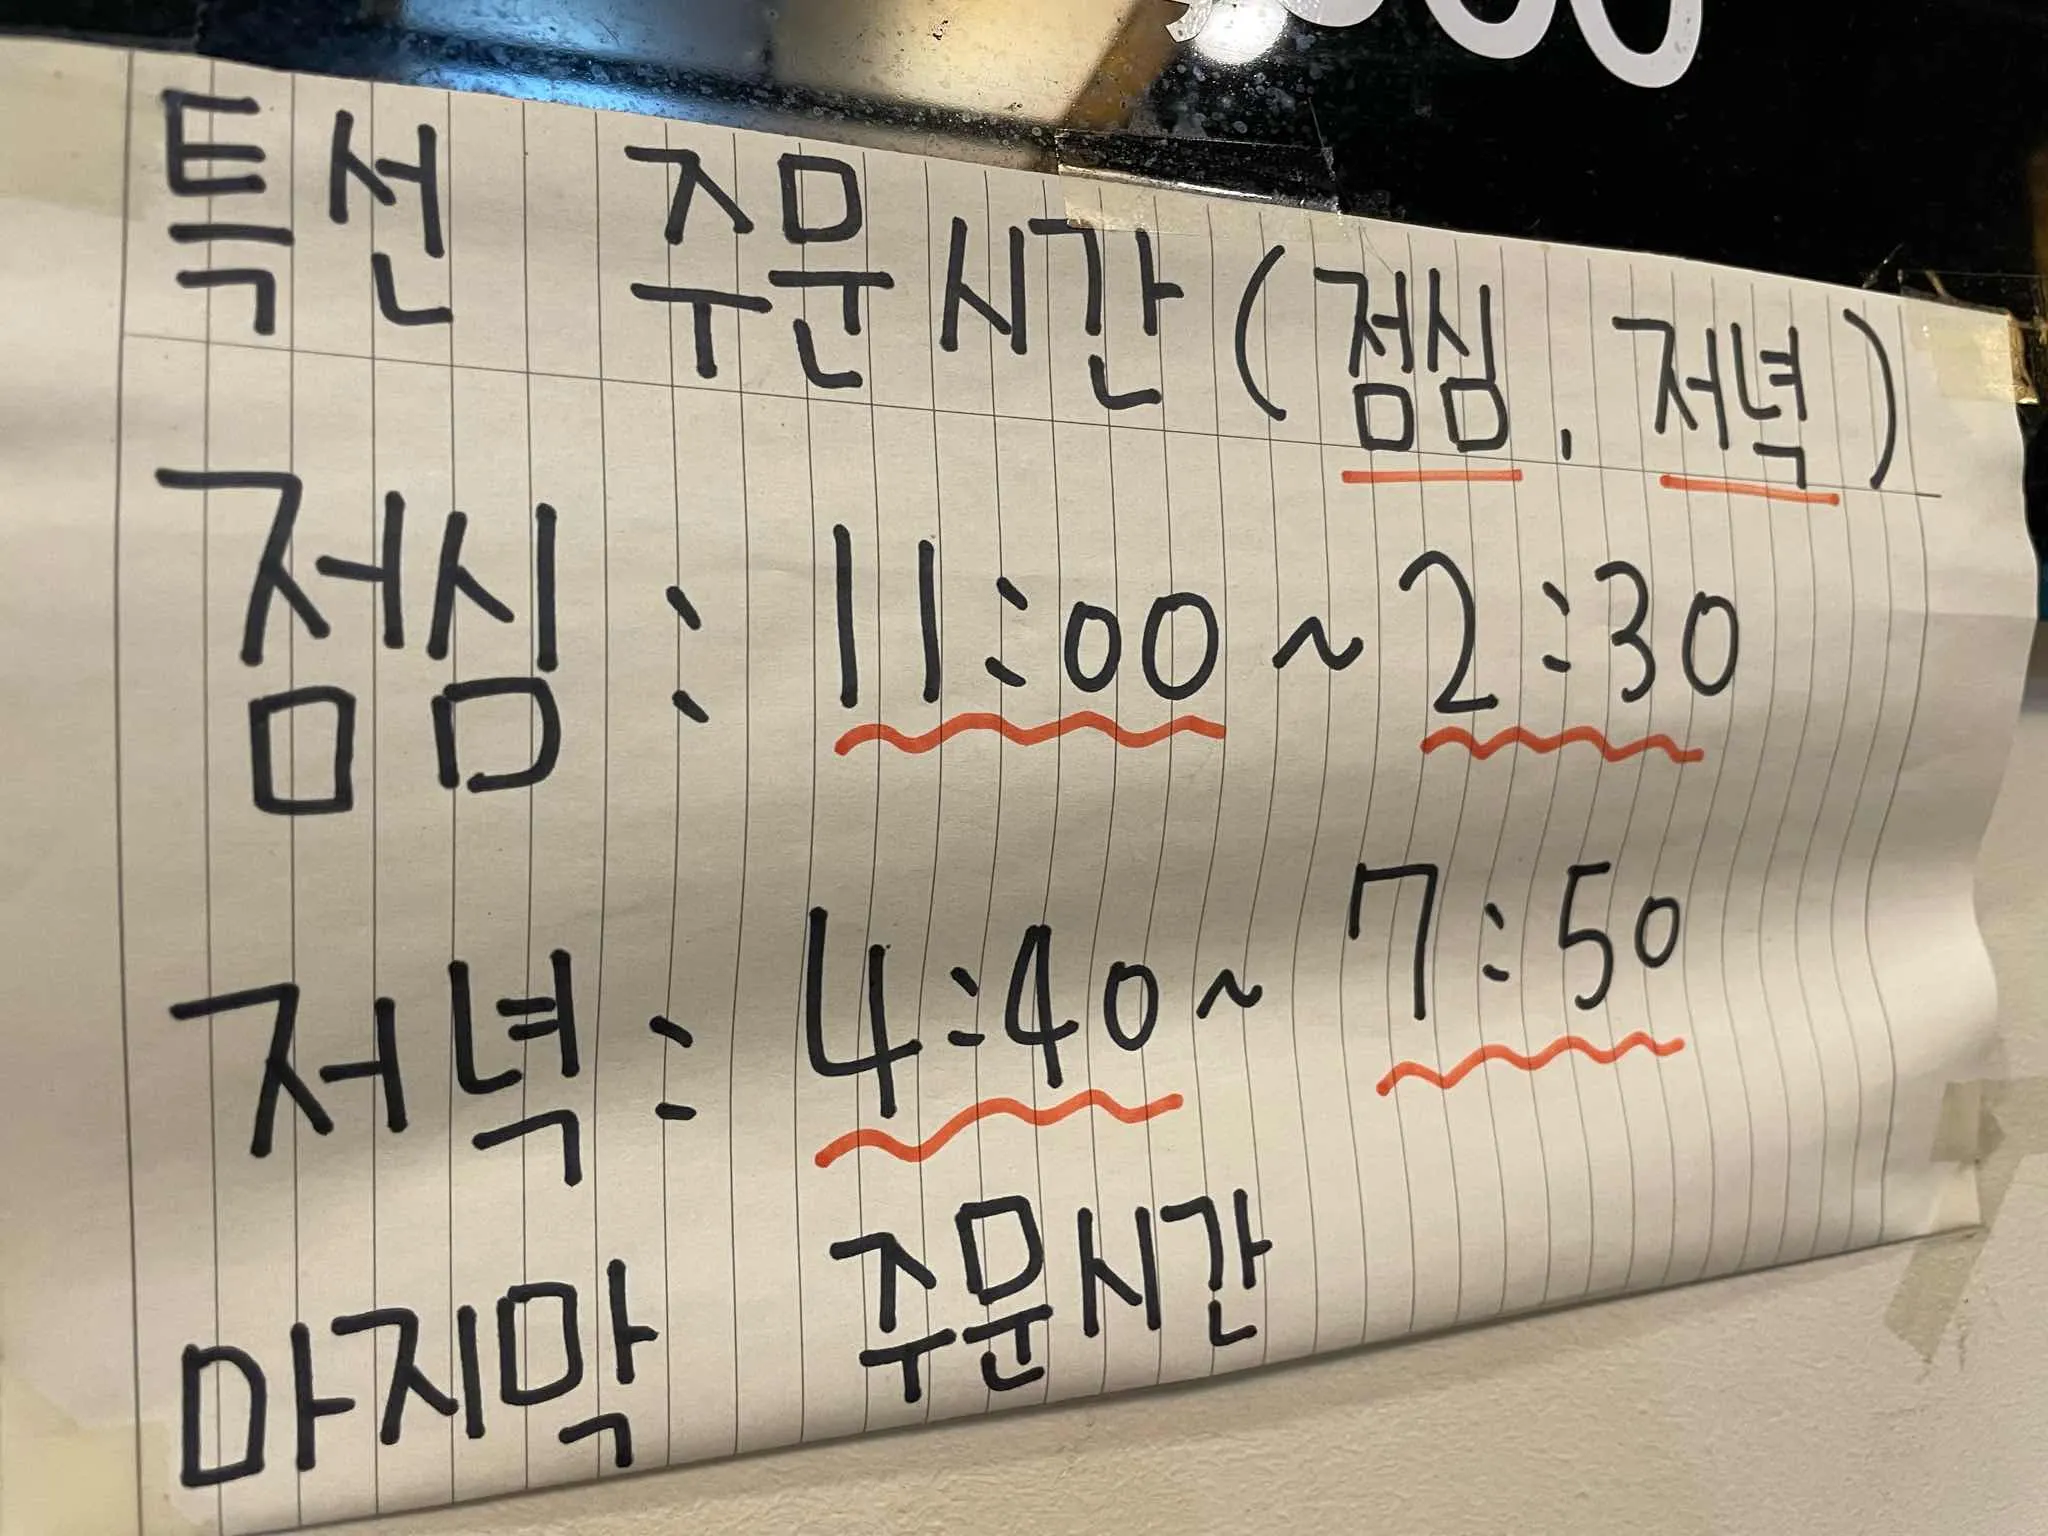 특선 주문시간 (점심, 저녁)
점심 : 11:00 ~ 2:30
저녁 : 4:40 ~ 7:50
마지막 주문시간